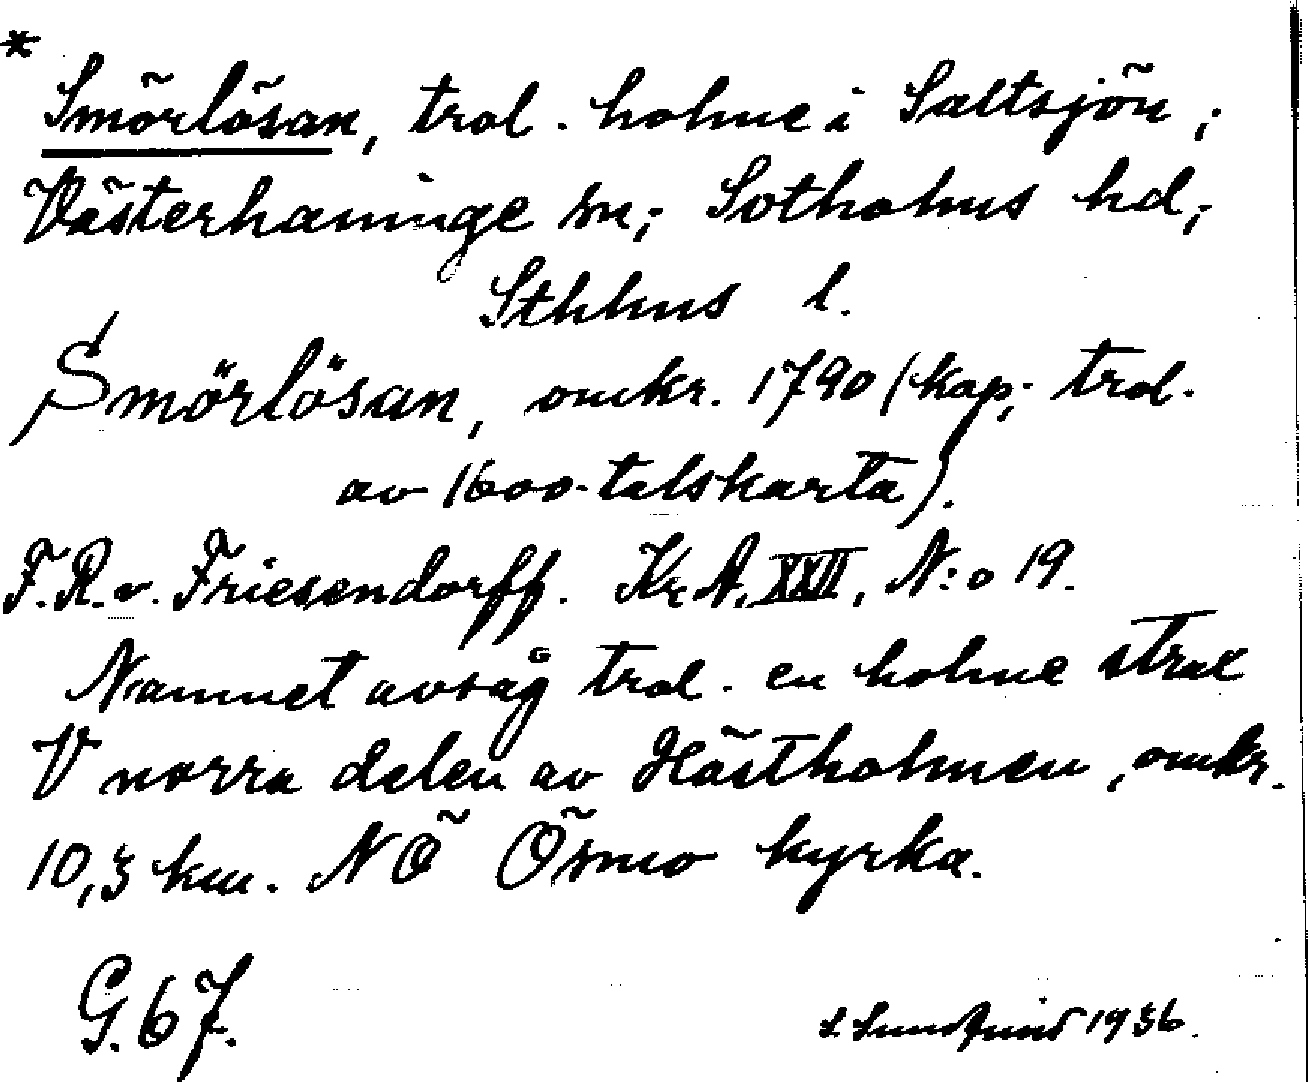 *
Smörlösan, trol. holme i Saltsjön;
Västerhaninge sn; Sotholms hd;
Sthlms l.
Smörlösan, omkr. 1790 (kop; trol.
av 1600-talskarta).
F.R.v. Friesendorff. Kr.A. XXII, N:o 19.
Namnet avsåg trol. en holme strax
V norra delen av Hästholmen, omkr.
10,3 km. NÖ Ösmo kyrka.
G.67.
S. Lundqvist 1936.